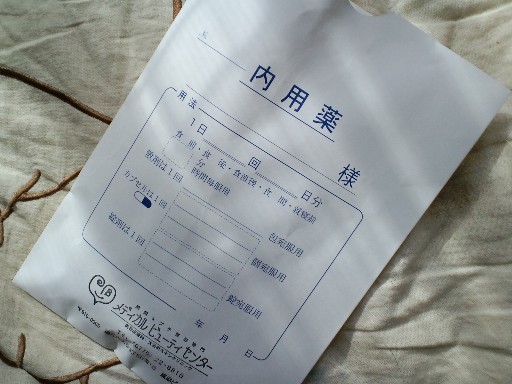 No.
内用薬
様
用法
1日 回 日分
食前・食後・食前後・食間・就寝前
分
時間毎服用
散剤は1回 包宛服用
カプセルは1回 個宛服用
錠剤は1回 錠宛服用
年 月 日
メディカルビューティセンター